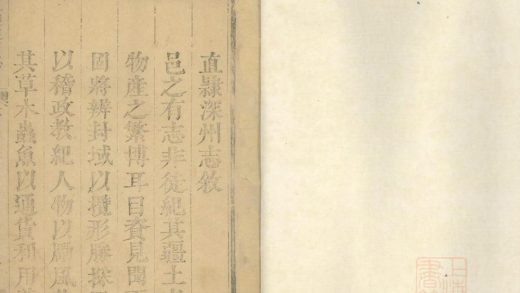 直隸深州志敘
邑之有志非徒紀其疆土
物產之繁博耳目資見聞
固將辨封域以攬形勝採
以稽政教紀人物以勵風
其草木蟲魚以通貨利用